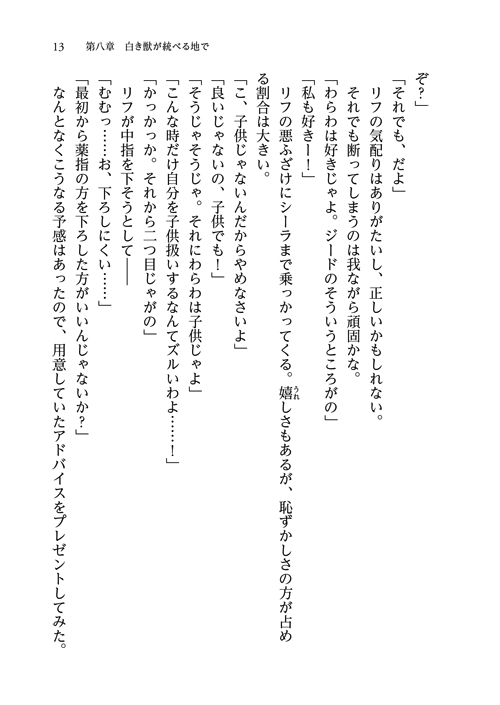 13　第八章　白き獣が統べる地で
ぞ？」
「それでも、だよ」
　リフの気配りはありがたいし、正しいかもしれない。
　それでも断ってしまうのは我ながら頑固かな。
「わらわは好きじゃよ。ジードのそういうところがの」
「私も好きー！」
　リフの悪ふざけにシーラまで乗っかってくる。嬉しさもあるが、恥ずかしさの方が占め
る割合は大きい。
「こ、子供じゃないんだからやめなさいよ」
「良いじゃないの、子供でも！」
「そうじゃそうじゃ。それにわらわは子供じゃよ」
「こんな時だけ自分を子供扱いするなんてズルいわよ……！」
「かっかっか。それから二つ目じゃがの」
　リフが中指を下そうとして――
「むむっ……お、下ろしにくい……」
「最初から薬指の方を下ろした方がいいんじゃないか？」
　なんとなくこうなる予感はあったので、用意していたアドバイスをプレゼントしてみた。